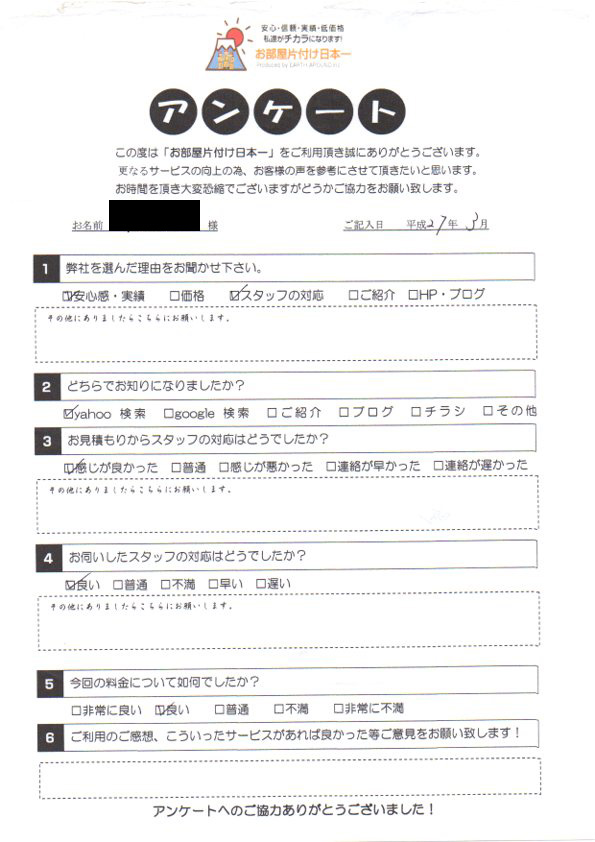 安心・信頼・実績・低価格
私達がチカラになります!
お部屋片付け日本一
Produced by EARTH AROUND Inc
アンケート
この度は「お部屋片付け日本一」をご利用頂き誠にありがとうございます。
更なるサービスの向上の為、お客様の声を参考にさせて頂きたいと思います。
お時間を頂き大変恐縮でございますがどうかご協力をお願い致します。
お名前 様 ご記入日 平成27年 3月
1 弊社を選んだ理由をお聞かせ下さい。
☑安心感・実績 □価格 ☑スタッフの対応 □ご紹介 □HP・ブログ
その他にありましたらこちらにお願いします。
2 どちらでお知りになりましたか?
☑yahoo 検索 □google 検索 □ご紹介 □ブログ □チラシ □その他
3 お見積もりからスタッフの対応はどうでしたか?
☑感じが良かった □普通 □感じが悪かった □連絡が早かった □連絡が遅かった
その他にありましたらこちらにお願いします。
4 お伺いしたスタッフの対応はどうでしたか?
☑良い □普通 □不満 □早い □遅い
その他にありましたらこちらにお願いします。
5 今回の料金について如何でしたか?
□非常に良い ☑良い □普通 □不満 □非常に不満
6 ご利用のご感想、こういったサービスがあれば良かった等ご意見をお願い致します!
アンケートへのご協力ありがとうございました!